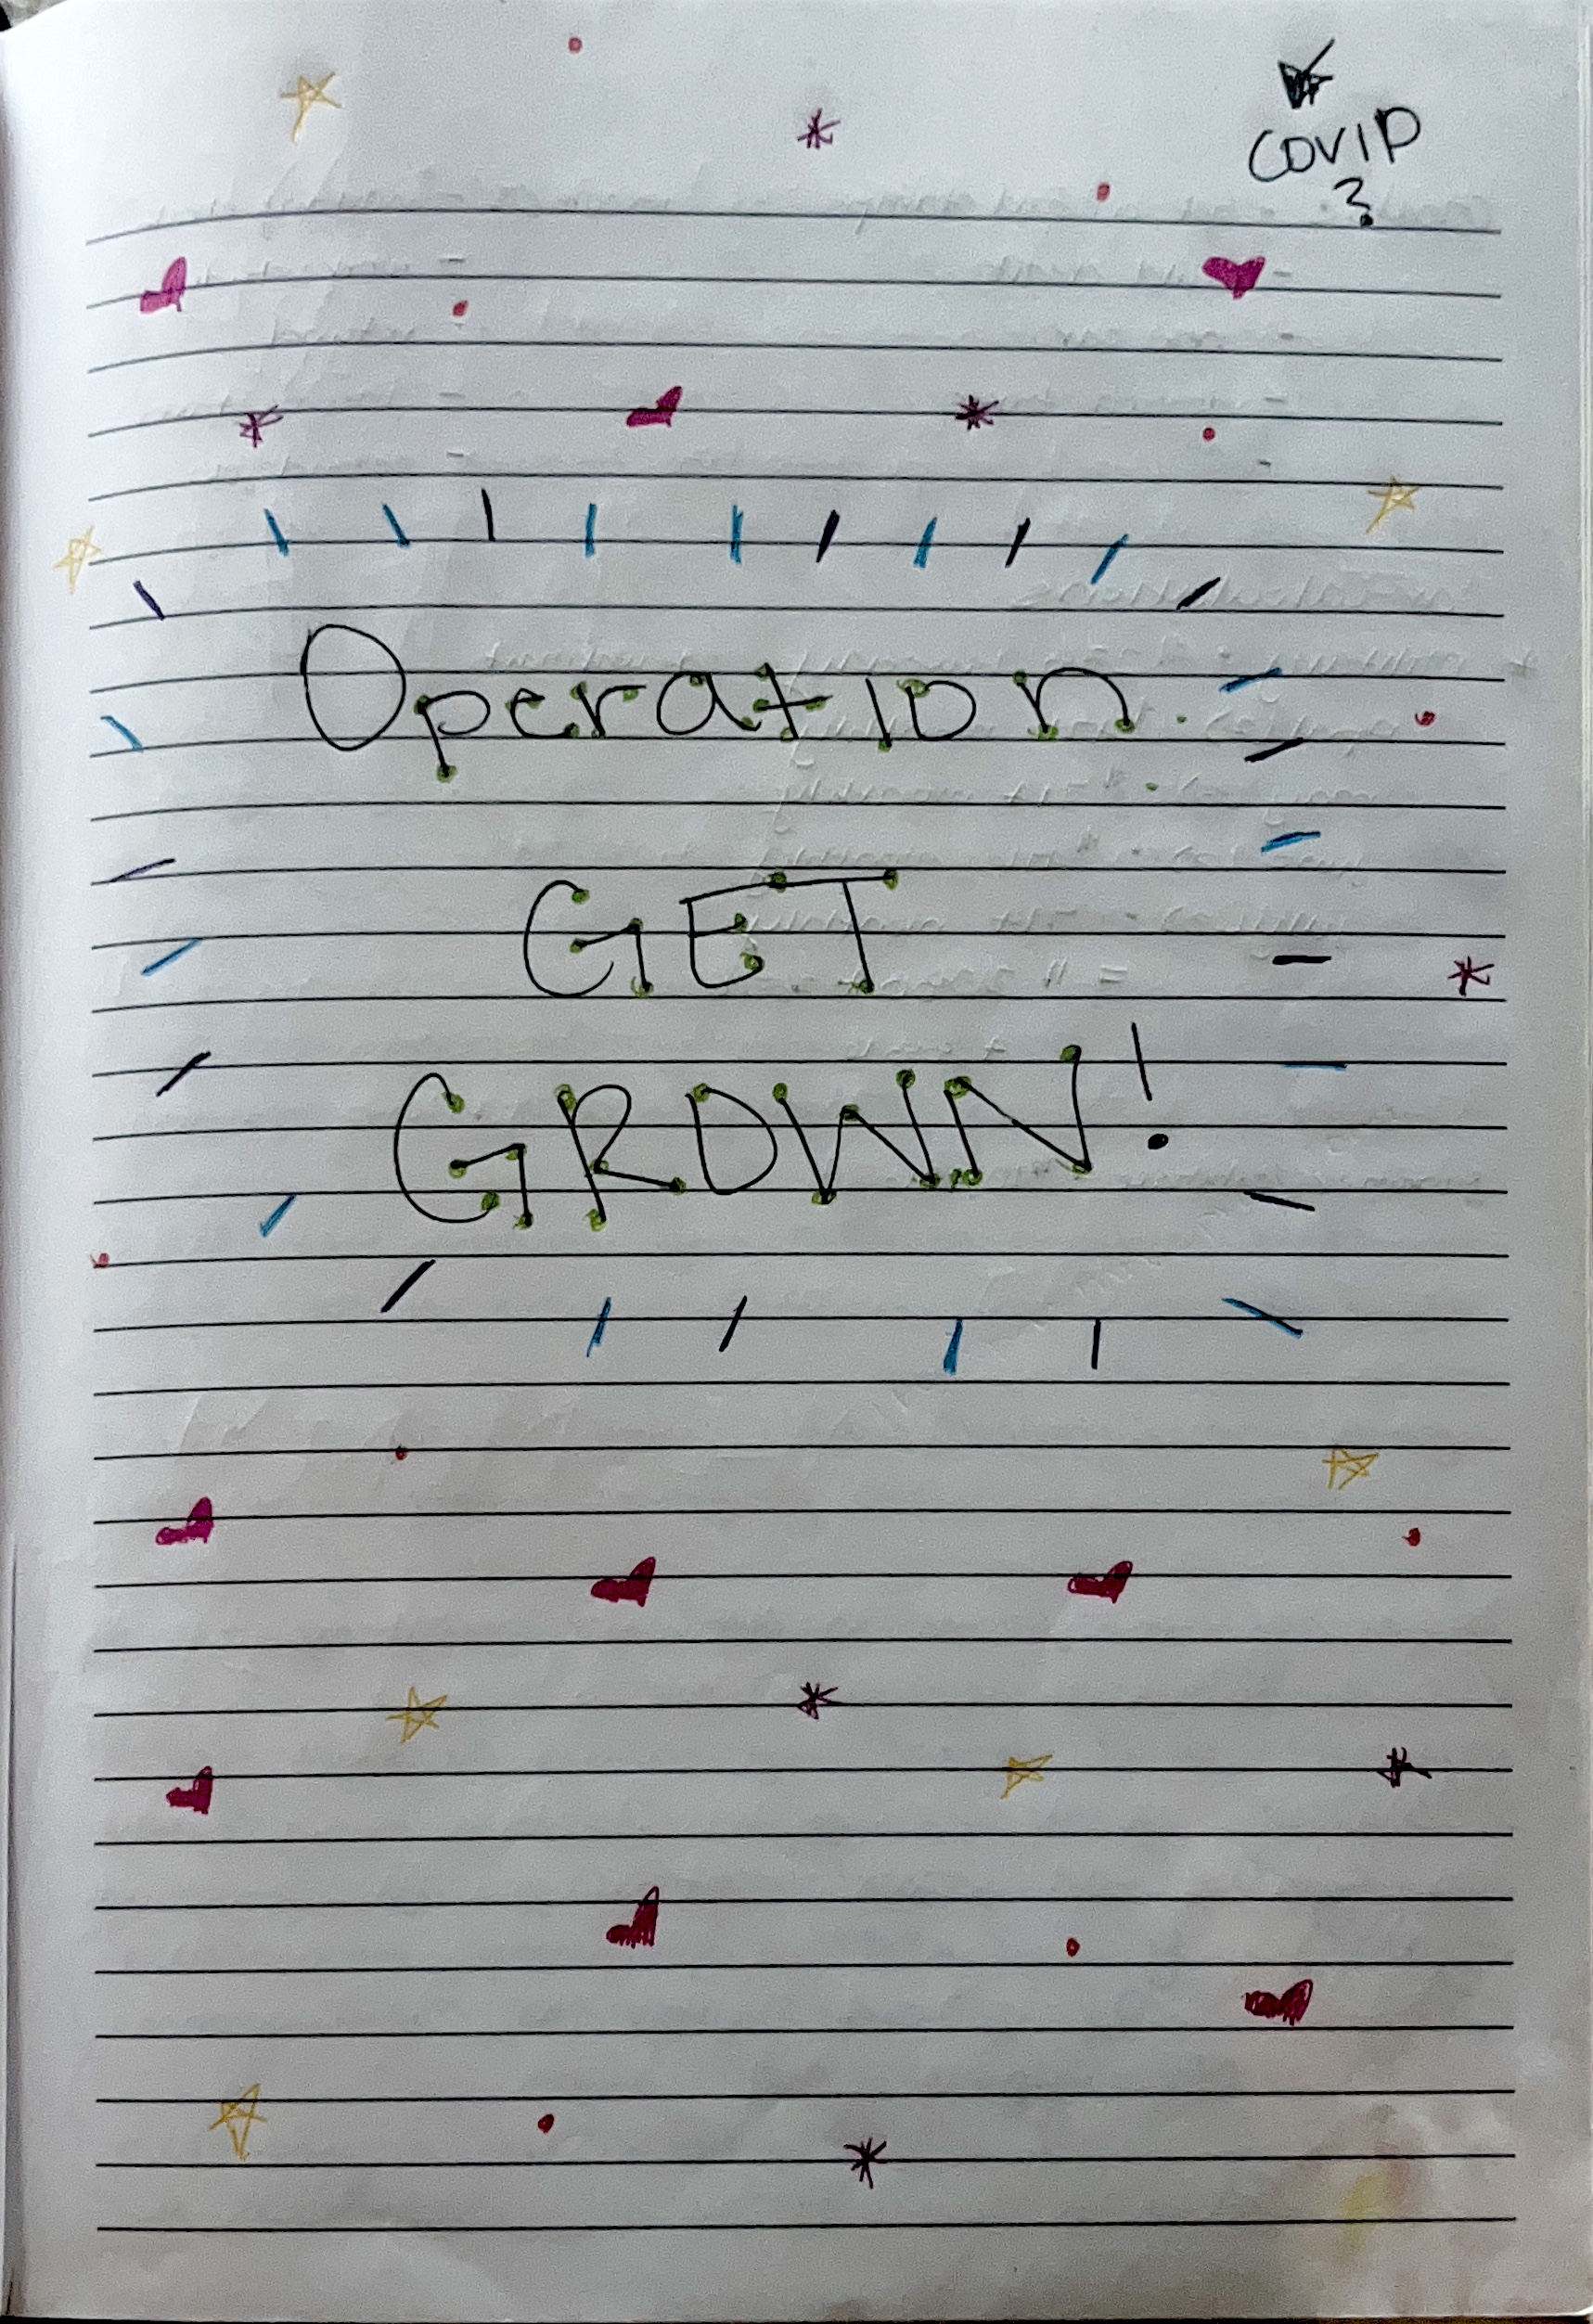 COVID
?
Operation.
GET
GROWN!